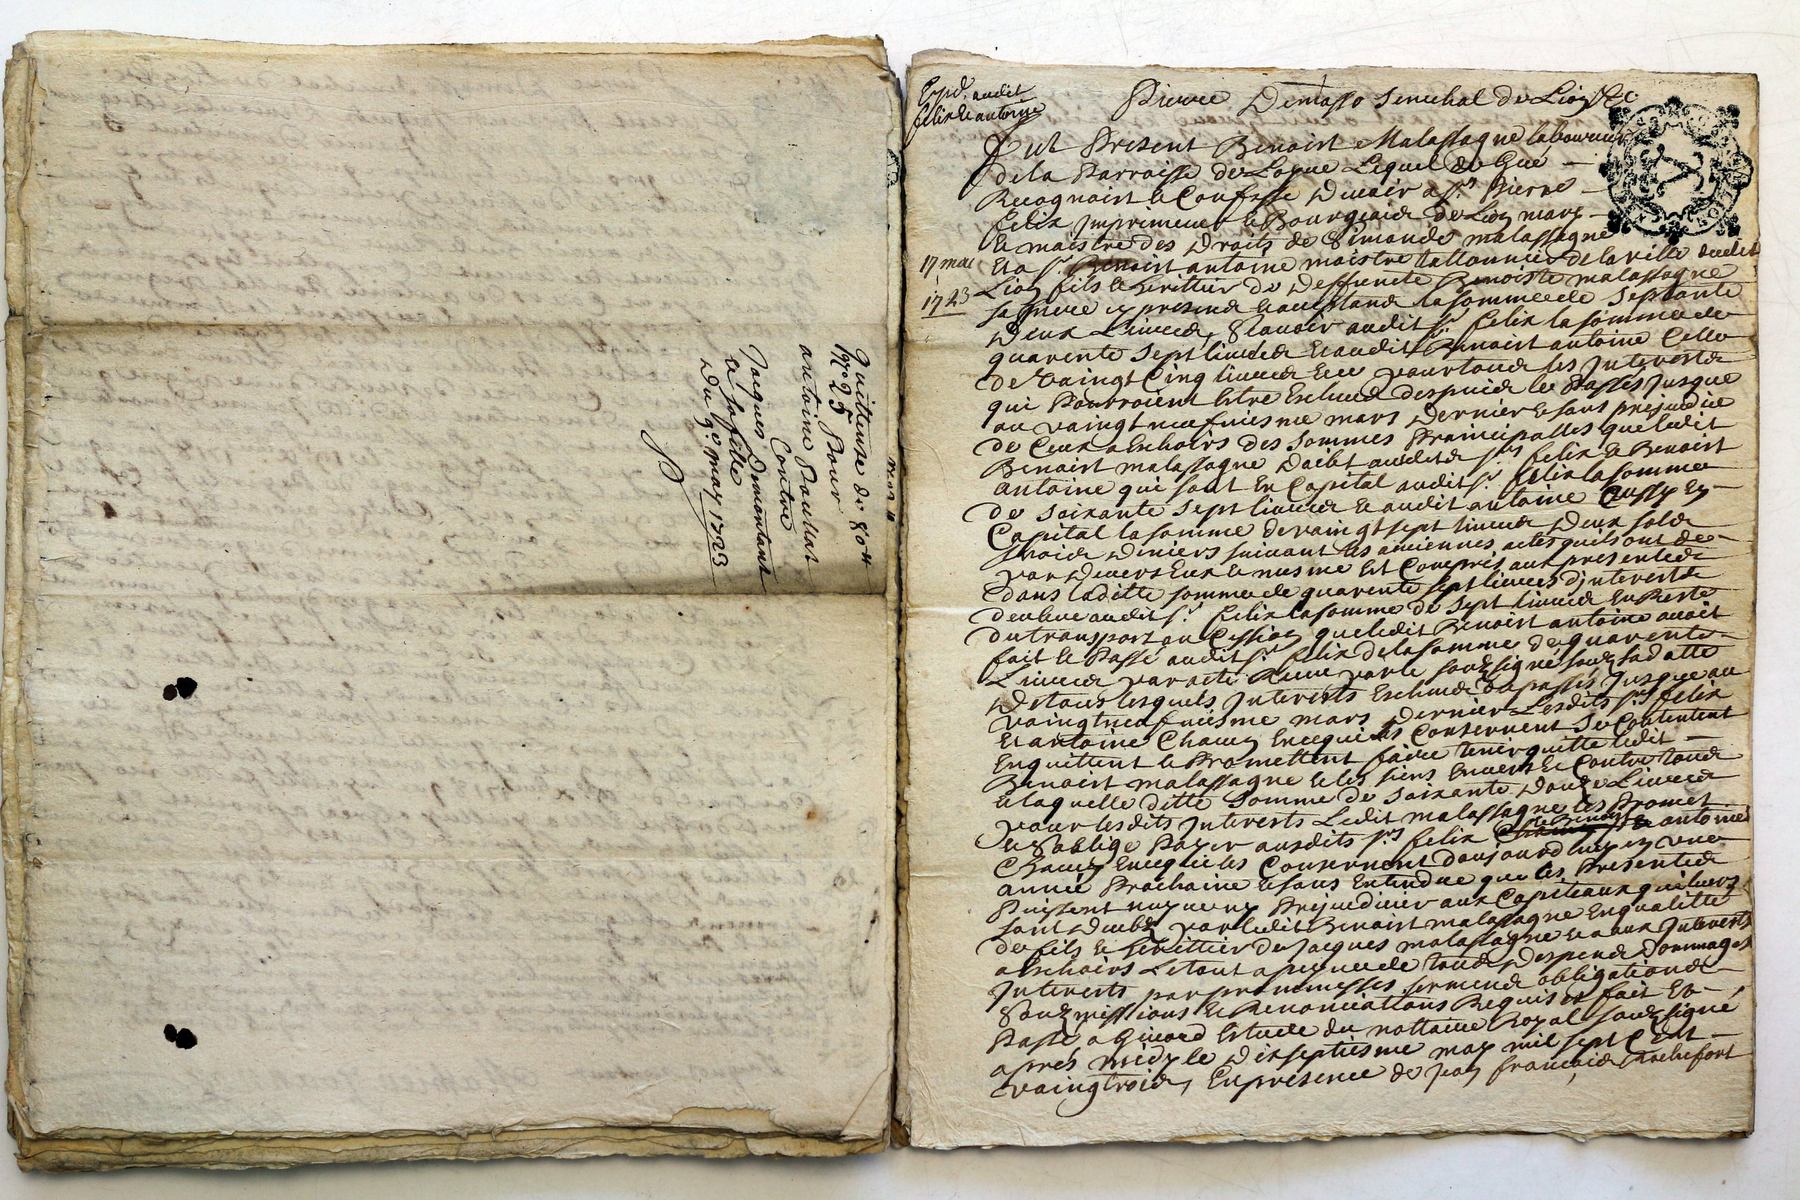 Quittence de 80#
17s 25 Pour
antoine Poulat
Contre
Jacques Dementant
et sa fille
Du 9e may 1723
Expd. audit
felix et antoine
Pierre Demasso Senechal de Lion &c
fut Present Benoist Malassagne laboureur
de la Parroisse de Loyne Lequel de Gré
Recognoist et Confesse Devoir a Sr. Pierre
felix Imprimeur et Bourgeois de Lion mary
et maistre des Droits de Simonde malassagne
17 may
1723
Et a Sr. Benoist antoine maistre de la ville dudit
Lion fils et heritier de deffuncte Benoiste malassagne
sa mere cy present et acceptand la somme de Septante
Deux Livres, Scavoir audit Sr. felix la somme de
quarente Sept livres et audit Benoist antoine Celle
de Vaingt Cinq livres et ce pour tous les Interests
qui Pourroient Estre Escheus despuis le Passé Jusque
au vaingt neufviesme mars Dernier et sans prejudice
de Ceux a Escheoirs des sommes Prainicipalles que ledit
Benoist malassagne Doibt ausdits Srs felix et Benoist
antoine qui sont En Capital audit Sr. felix la somme
de soixante sept livres et audit antoine Aussy En
Capital la somme de vaingt sept livres Deux sols
trois Deniers suivant les anciennes actes quils ont de
par Devers Eux et mesme Est Compris aux presentes
dans laditte somme de quarente sept livres d'interests
deubue audit Sr. felix la somme de sept livres En Reste
du transport ou Cession que ledit Benoist antoine avoit
fait et Passé audit Sr. felix de la somme de quarente
Livres par acte Receu par le soubsigné soubs sa datte
Detous lesquels Interests Escheus du passés Jusque au
vaingt neufviesme mars Dernier Lesdits Srs felix
Et antoine Chacun Encequi les Consernent se Contentent
En quittent et Promettent faire tenir quitte ledit
Benoist malassagne et les siens Envers et Contre tous
et laquelle ditte somme de soixante Douze Livres
pour lesdits Interests Ledit malassagne les Promet
et oblige Payer ausdits Srs felix et Benoist antoine
Chacun Encequi les Consernent d'aujourdhuy en une
année Prochaine et sans Entendre que les Presentes
Puissent Prejudicier aux Capiteaux qui leurs
sont Deubs par ledit Benoist malassagne En qualitte
de fils et heritier de Jacques malassagne et aux Interests
a Escheoirs Le tout a peyne de tous Despens Dommages
Interests par promesses serment obligations
soubzmissions et Renonciations Requis et fait Et
Passé a Givord Estude du nottaire Royal soubsigné
aprés midy le Dix septiesme may mil sept Cent
vaingtrois, En presence de Jean françois Rochefort